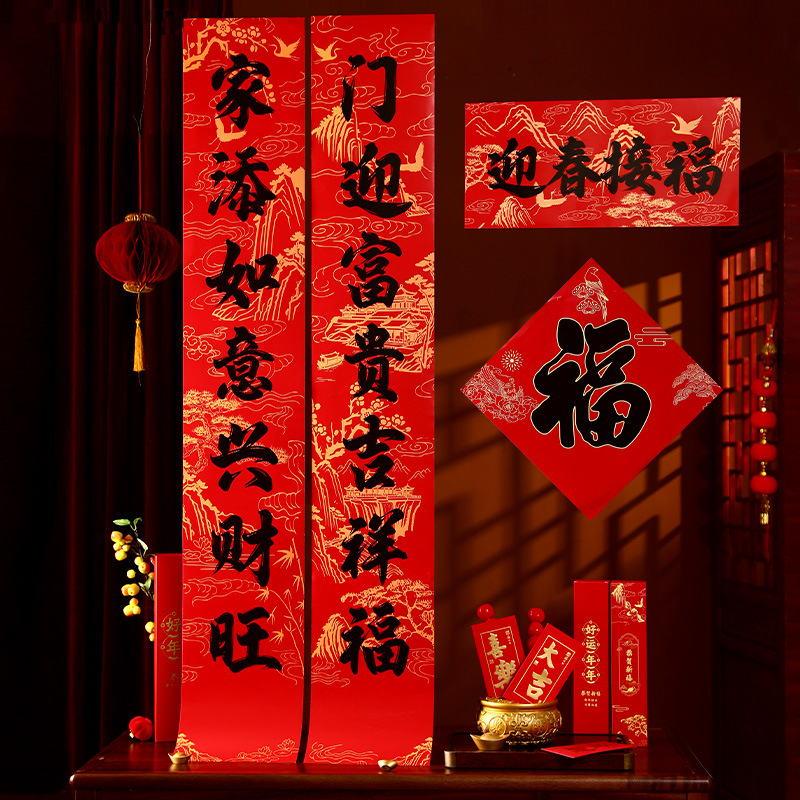 门迎富贵吉祥福
家添如意兴财旺
迎春接福
福
喜
大吉
好运年年
恭贺新禧
恭贺新福
好年